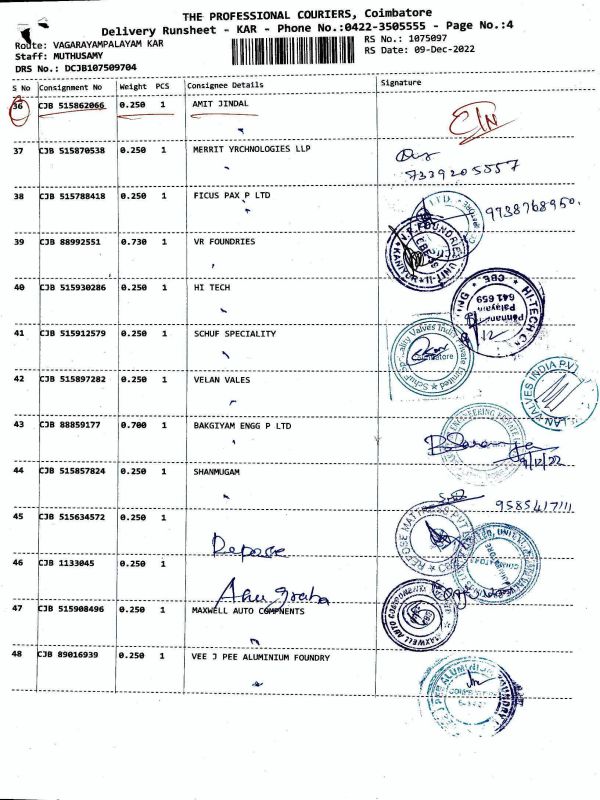 THE PROFESSIONAL COURIERS, Coimbatore
Delivery Runsheet - KAR - Phone No.:0422-3505555 - Page No.:4
Route: VAGARAYAMPALAYAM KAR
RS No.: 1075097
Staff: MUTHUSAMY
RS Date: 09-Dec-2022
DRS No.: DCJB107509704
S No Consignment No Weight PCS Consignee Details Signature
36 CJB 515862066 0.250 1 AMIT JINDAL
37 CJB 515870538 0.250 1 MERRIT YRCHNOLOGIES LLP
7339205557
38 CJB 515788418 0.250 1 FICUS PAX P LTD
9738768950.
39 CJB 88992551 0.730 1 VR FOUNDRIES
V.R. FOUNDRIES UNIT-II
40 CJB 515930286 0.250 1 HI TECH
HI-TECH
CBE
Palayam
641 659
41 CJB 515912579 0.250 1 SCHUF SPECIALITY
42 CJB 515897282 0.250 1 VELAN VALES
VALVES INDIA PVT
43 CJB 88859177 0.700 1 BAKGIYAM ENGG P LTD
ENGINEERING PRIVATE
9/12/22
44 CJB 515857824 0.250 1 SHANMUGAM
45 CJB 515634572 0.250 1
Repose
REPOSE MATTRESS PVT
46 CJB 1133045 0.250 1
47 CJB 515908496 0.250 1 MAXWELL AUTO COMPNENTS
MAXWELL AUTO COMPONENTS
48 CJB 89016939 0.250 1 VEE J PEE ALUMINIUM FOUNDRY
PEE ALUMINIUM FOUNDRY